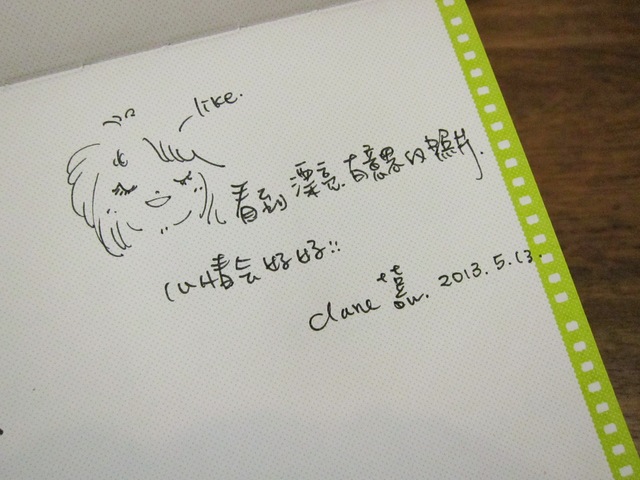 like.
看到漂亮.有意思的照片.
心情會好好!!
Clane 2013.5.13.